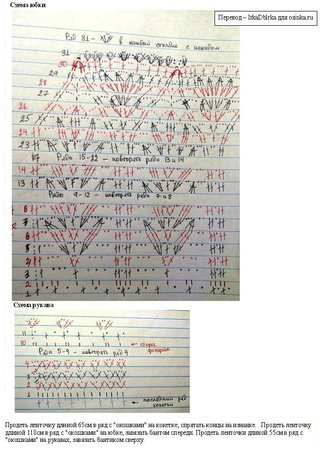 Схема юбки
Перевод – IrkaDbIrka для osinka.ru
Ряд 31 - в каждый столбик с накидом
31
30
29
28
27
26
25
24
23
Ряды 15-22 - повторять ряды 13 и 14
14
13
Ряды 9-12 - повторять ряды 7 и 8
8
7
6
5
4
3
2
1
Схема рукава
11
10
Ряды 5-9 - повторять ряд 4
4
3
2
1
последний ряд кокетки
Продеть ленточку длиной 65см в ряд с "окошками" на кокетке, спрятать концы на изнанке. Продеть ленточку
длиной 118см в ряд с "окошками" на юбке, завязать бантом спереди. Продеть ленточки длиной 55см в ряд с
"окошками" на рукавах, завязать бантиком сверху.